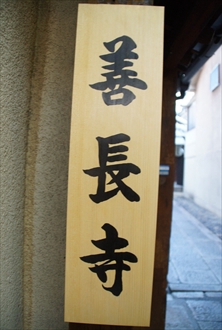 善長寺